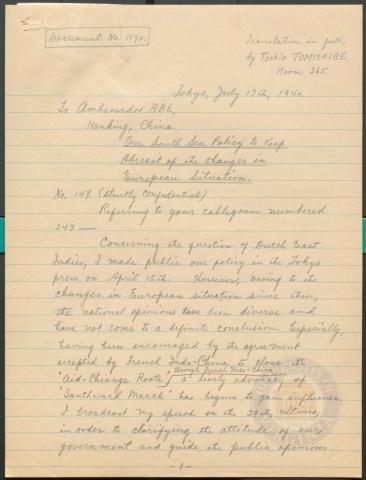 Document No. 1590.
Translation in full,
by Toshio TOMISHIGE,
Room 365.
Tokyo, July 13th, 1940.
To Ambassador ABE,
Nanking, China.
Our South Sea Policy to Keep
Abreast of the changes in
European Situation.
No. 149. (Strictly Confidential)
Referring to your cablegram numbered
243 —
Concerning the question of Dutch East
Indies, I made public our policy in the Tokyo
press on April 15th. However, owing to the
changes in European situation since then,
the national opinions have been diverse and
have not come to a definite conclusion. Especially,
having been encouraged by the agreement
accepted by French Indo-China to close the
"Aid-Chiange Route" through French Indo-China, a lively advocacy of
"Southward March" has begun to gain influence.
I broadcast my speech on the 29th ultimo,
in order to clarifying the attitude of our
government and guide the public opinions
- 1 -